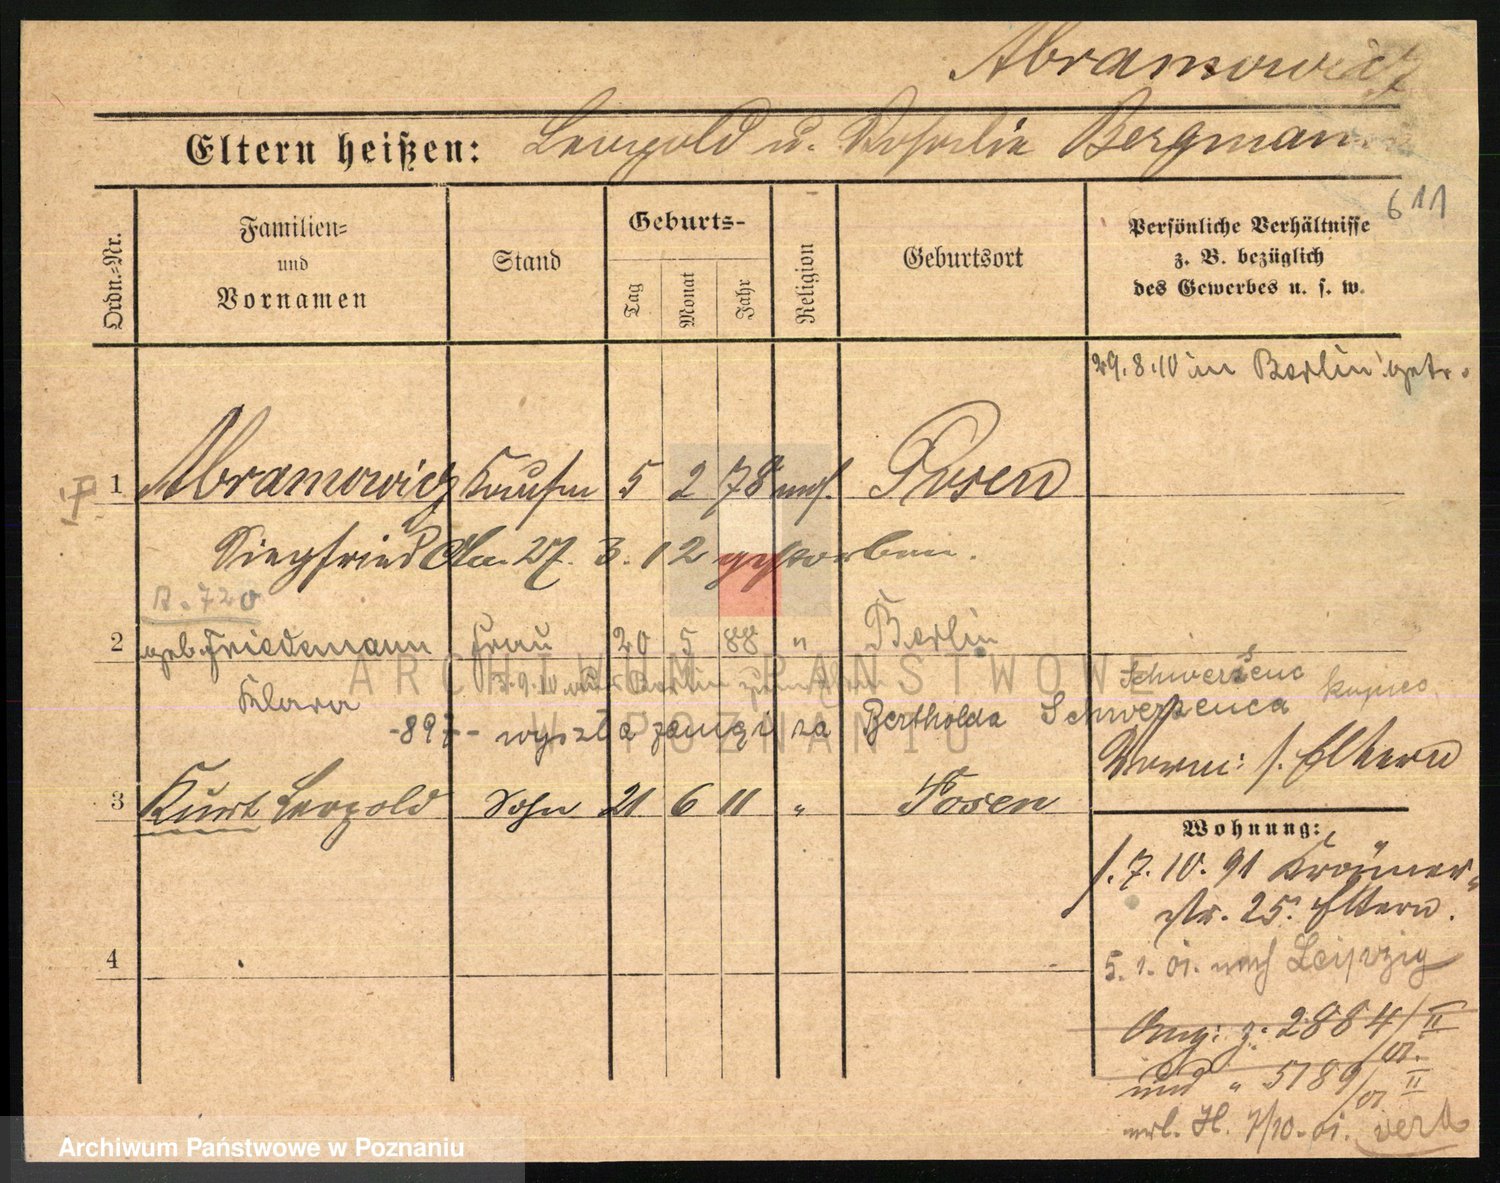 Abramowicz
Eltern heißen: Leopold u. Rosalie Bergmann
611
Ordn.-Nr.
Familien-
und
Vornamen
Stand
Geburts-
Tag
Monat
Jahr
Religion
Geburtsort
Persönliche Verhältnisse
z. B. bezüglich
des Gewerbes u. s. w.
29.8.10 in Berlin getr.
1 Abramowicz Kaufm 5 2 78 mos. Posen
Siegfried Am 27. 3. 12 gestorben.
A. 720
2 geb. Friedemann Frau 20 5 88 " Berlin
Klara 3.9.10 aus Berlin
Schwersenc kupiec
-897- wyszła zamąż za Bertholda Schwersenca
Vorm: s. Eltern
3 Kurt Leopold Sohn 21 6 11 " Posen
Wohnung:
s. 7. 10. 91 Krämer-
str. 25. Eltern.
4
5. 1. 01. nach Leipzig
Ang: z: 2884/01. II
und " 5189/01 II
H. 7/10.01. verb
ARCHIWUM PAŃSTWOWE
W POZNANIU
Archiwum Państwowe w Poznaniu